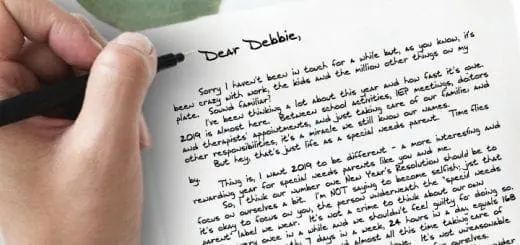 Dear Debbie,
Sorry I haven't been in touch for a while but, as you know, it's
been crazy with work, the kids and the million other things on my
plate. Sound familiar?
I've been thinking a lot about this year and how fast it's gone.
2019 is almost here. Between school activities, IEP meetings, doctors
and therapists' appointments, and just taking care of our families and
other responsibilities, it's a miracle we still know our names.
But hey, that's just life as a special needs parent. Time flies
by.
Thing is, I want 2019 to be different - a more interesting and
rewarding year for special needs parents like you and me.
So, I think our number one New Year's Resolution should be to
focus on ourselves a bit. I'm NOT saying to become selfish; just that
it's okay to focus on you, the person underneath the "special needs
parent" label we wear. It's not a crime to think about our own
every once in a while and we shouldn't feel guilty for doing so.
7 days in a week, 24 hours in a day equals 168
almost all this time taking care of
it's not unreasonable
ourselves.